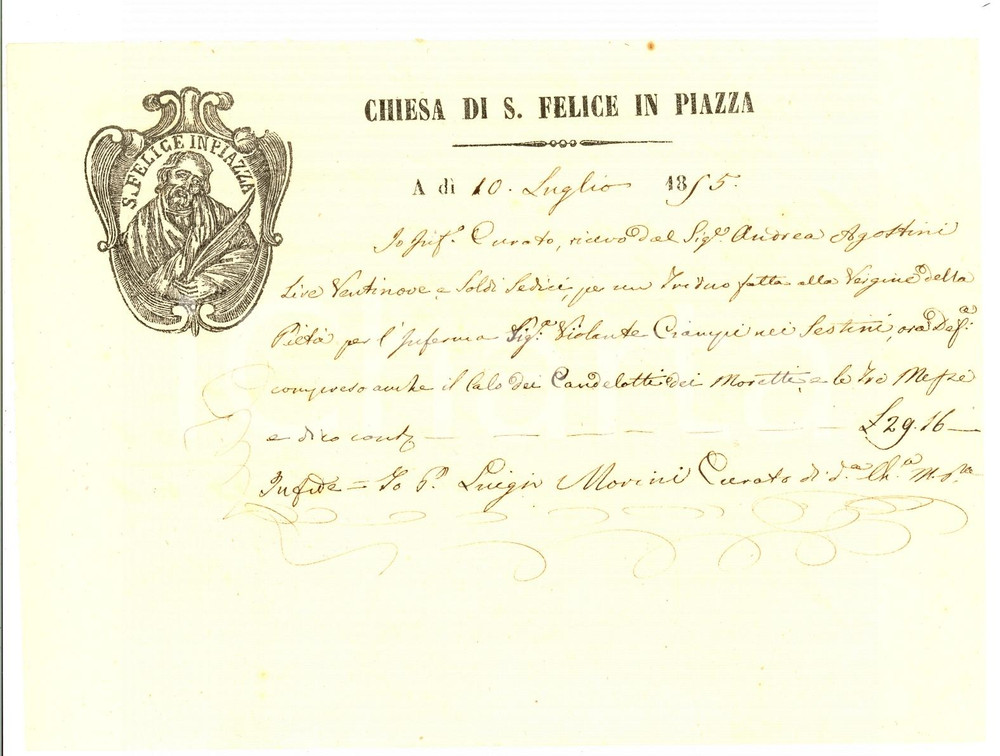 CHIESA DI S. FELICE IN PIAZZA
S. FELICE IN PIAZZA
A dì 10. Luglio 1855.
Io Inf.º Curato, ricevo dal Sigr. Andrea Agostini
Lire Ventinove, e Soldi Sedici, per un Triduo fatto alla Vergine della
Pietà per l'Inferma Sig.ª Violante Ciampi nei Sestini, ora Def.ª
compreso anche il Calo dei Candelotti dei Moretti, e le Tre Messe
e dico contz £29.16
In fede = Io P. Luigi Morini Curato di d.ª Ch.ª M.º p.ª